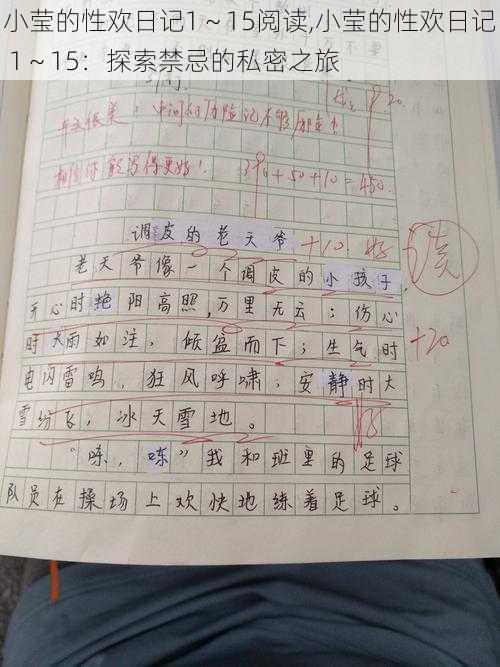 小莹的性欢日记1～15阅读,小莹的性欢日记
1～15：探索禁忌的私密之旅
20
开头很美，中间的
相信你能写得更好！
+50+10=450
调皮的老天爷 +10 好
读
老天爷像一个调皮的小孩子，
开心时艳阳高照，万里无云；伤心
时大雨如注，倾盆而下；生气时 +20
电闪雷鸣，狂风呼啸；安静时大
雪纷飞，冰天雪地。
好
“咚，咚”我和班里的足球
队员在操场上欢快地练着足球。